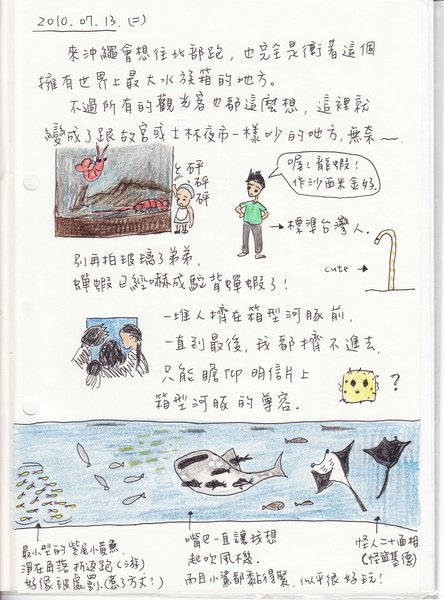 2010.07.13.(二)
來沖繩會想往北部跑，也完全是衝著這個
擁有世界上最大水族箱的地方。
不過所有的觀光客也都這麼想，這裡就
變成了跟故宮或士林夜市一樣吵的地方，無奈～
砰
砰
砰
喔！龍蝦！
作沙西米金好。
→標準台灣人。
別再拍玻璃了弟弟，
蟬蝦已經嚇成駝背蟬蝦了！
cute →
一堆人擠在箱型河豚前，
一直到最後，我都擠不進去，
只能瞻仰明信片上
箱型河豚的尊容。
?
最小型的紫尾小黃魚
滯在角落折返跑(游)
好像被處罰(惹了方丈？)
嘴巴一直讓我想
起吹風機，
而且小鯊都黏得緊，似乎很好玩！
怪人二十面相
(怪盜基德)